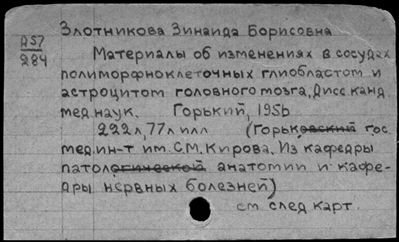 Злотникова Зинаида Борисовна
Д57
284
Материалы об изменениях в сосудах
полиморфноклеточных глиобластом и
астроцитом головного мозга, Дисс канд
мед наук. Горький, 1956
222 л, 77 л илл (Горьковский гос
мед. ин-т им. С.М. Кирова. Из кафедры
патологической анатомии и кафе-
дры нервных болезней)
см след карт.